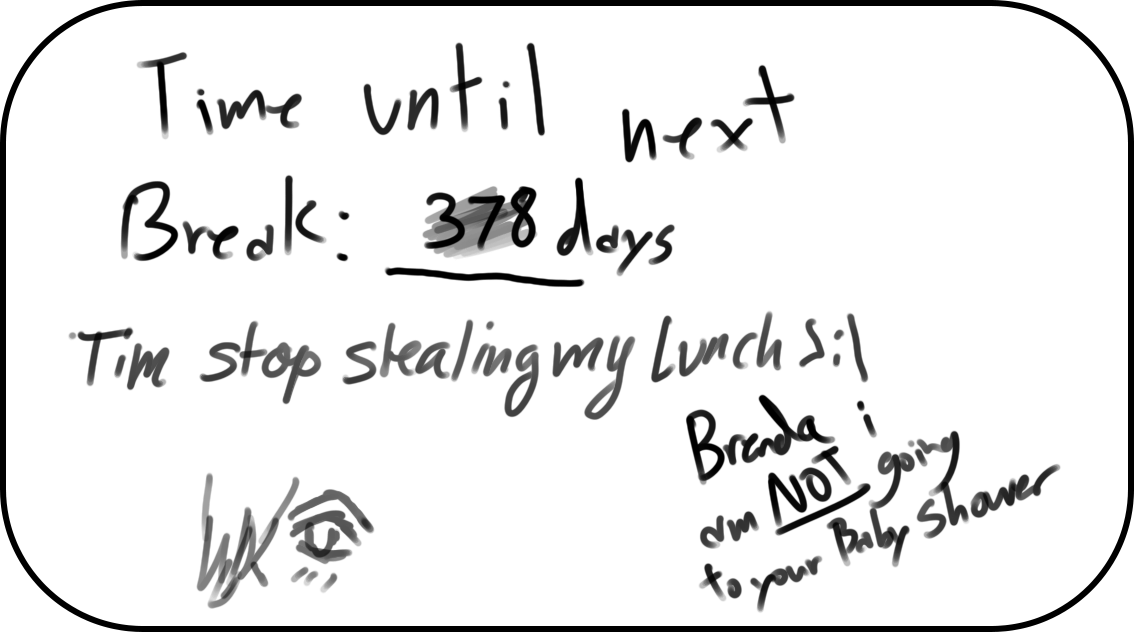 Time until next
Break: 378 days
Tim stop stealing my lunch S:|
Brenda i
am NOT going
to your Baby Shower